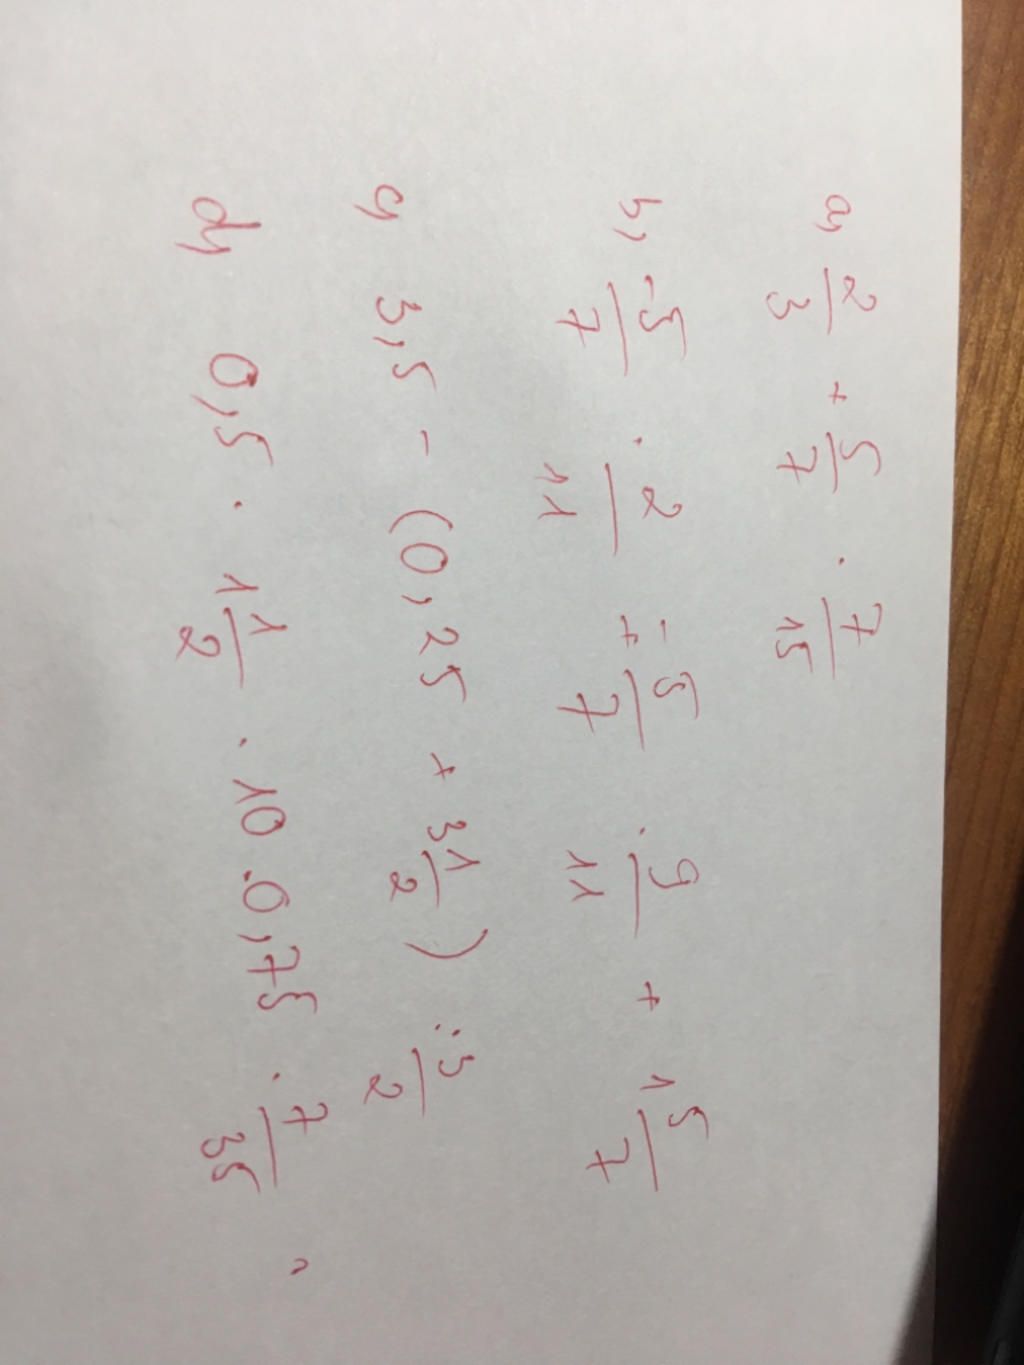 a, 2/3 + 5/7 . 7/15
b, -5/7 . 2/11 + -5/7 . 9/11 + 1 5/7
c, 3,5 - (0,25 + 3 1/2) : 3/2
d, 0,5 . 1 1/2 . 10 . 0,75 . 7/35